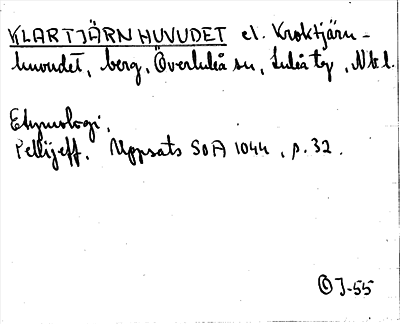 KLARTJÄRNHUVUDET el. Kroktjärn-
huvudet, berg, Överluleå sn, Luleå tg, Nbl.
Etymologi.
Pellijeff. Uppsats SOA 1044, p. 32.
J-55